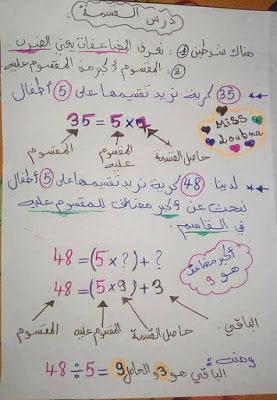 درس القسمة
هناك شرطين ① : نعرف المضاعفات يعني الضرب.
② : المقسوم أكبر من المقسوم عليه
35 كرية نريد تقسيمها على 5 أطفال
35 = 5 × 7
Miss Loubna
المقسوم
المقسوم عليه
حاصل القسمة
لدينا 48 كرية نريد تقسيمها على 5 أطفال
نبحث عن أكبر مضاعف للمقسوم عليه
في القاسم.
48 = (5 × ?) + ?
48 = (5 × 9) + 3
أكبر مضاعف
هو 9
المقسوم
المقسوم عليه
حاصل القسمة
الباقي.
ومنه
48 ÷ 5 = 9 الباقي هو 3 والحاصل